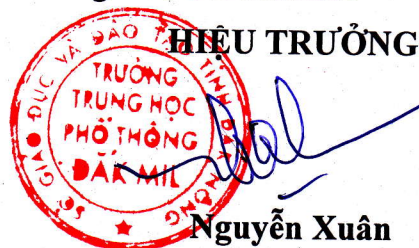 HIỆU TRƯỞNG
SỞ GIÁO DỤC VÀ ĐÀO TẠO TỈNH ĐĂK NÔNG
TRƯỜNG
TRUNG HỌC
PHỔ THÔNG
ĐĂK MIL
Nguyễn Xuân